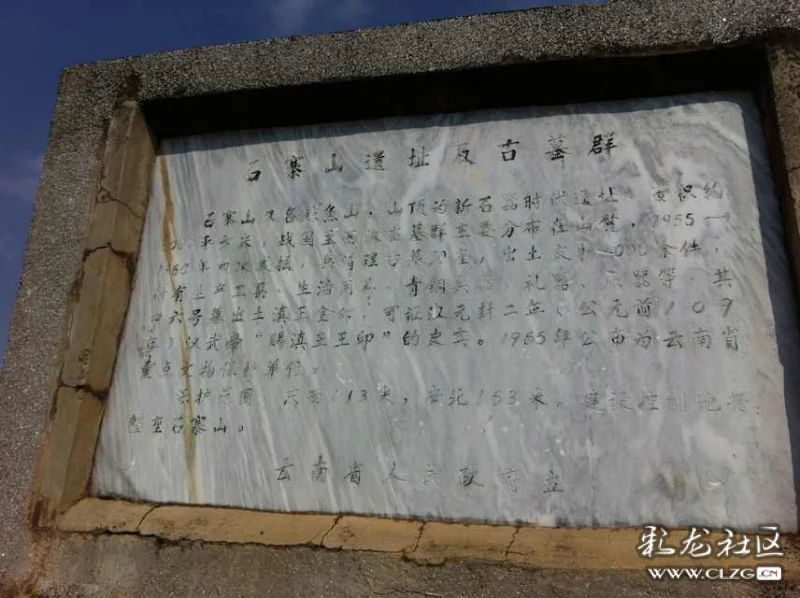 石寨山遗址及古墓群
石寨山又名鲸鱼山，山顶为新石器时代遗址，面积约
平方米，战国至西汉古墓群主要分布在山麓，1955—
1960年四次发掘，共清理古墓50座，出土文物4000余件，
计有生产工具、生活用具、青铜兵器、礼器、乐器等，其
中六号墓出土滇王金印，可证汉元封二年（公元前109
年）汉武帝“赐滇王王印”的史实。1965年公布为云南省
重点文物保护单位。
保护范围：东西113米，南北153米。建设控制地带：
整座石寨山。
云南省人民政府立
彩龙社区
WWW.CLZG.CN